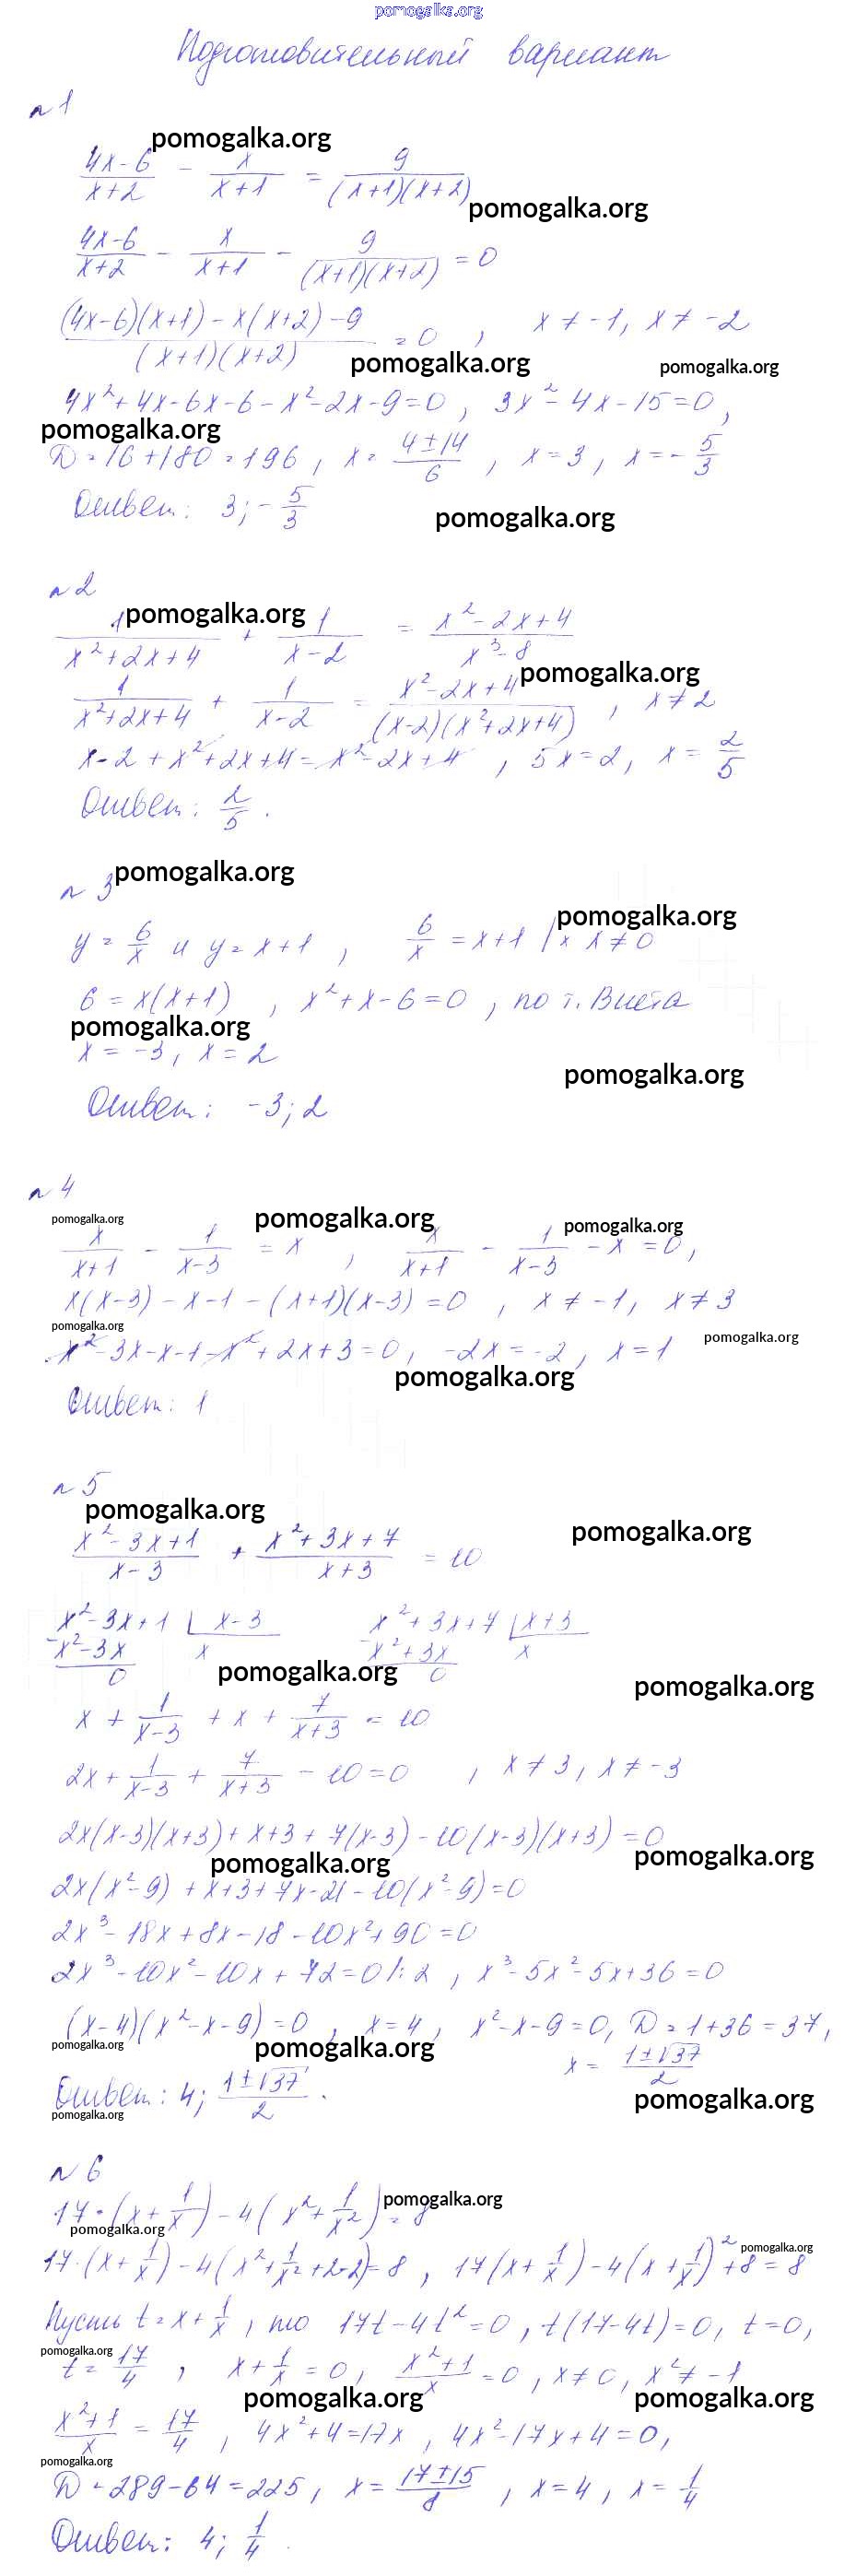 pomogalka.org
Подготовительный вариант
n 1
pomogalka.org
(4x-6)/(x+2) - x/(x+1) = 9/((x+1)(x+2))
pomogalka.org
(4x-6)/(x+2) - x/(x+1) - 9/((x+1)(x+2)) = 0
((4x-6)(x+1) - x(x+2) - 9)/((x+1)(x+2)) = 0 , x ≠ -1, x ≠ -2
pomogalka.org pomogalka.org
4x²+4x-6x-6-x²-2x-9=0, 3x²-4x-15=0,
pomogalka.org
D=16+180=196, x= (4±14)/6, x=3, x=-5/3
Ответ: 3; -5/3
pomogalka.org
n 2
pomogalka.org
1/(x²+2x+4) + 1/(x-2) = (x²-2x+4)/(x³-8)
pomogalka.org
1/(x²+2x+4) + 1/(x-2) = (x²-2x+4)/((x-2)(x²+2x+4)) , x ≠ 2
x-2+x²+2x+4=x²-2x+4 , 5x=2, x= 2/5
Ответ: 2/5.
n 3 pomogalka.org
pomogalka.org
y= 6/x и y=x+1 , 6/x = x+1 /·x x≠0
6=x(x+1) , x²+x-6=0 , по т. Виета
pomogalka.org
x=-3, x=2
pomogalka.org
Ответ: -3; 2
n 4
pomogalka.org pomogalka.org pomogalka.org
x/(x+1) - 1/(x-3) = x , x/(x+1) - 1/(x-3) - x = 0,
x(x-3)-x-1-(x+1)(x-3)=0 , x≠-1, x≠3
pomogalka.org pomogalka.org
x²-3x-x-1-x²+2x+3=0, -2x=-2, x=1
pomogalka.org
Ответ: 1
n 5
pomogalka.org pomogalka.org
(x²-3x+1)/(x-3) + (x²+3x+7)/(x+3) = 10
x²-3x+1 | x-3 x²+3x+7 | x+3
-x²-3x x -x²+3x x
0 0
pomogalka.org pomogalka.org
x + 1/(x-3) + x + 7/(x+3) = 10
2x+ 1/(x-3) + 7/(x+3) - 10=0 , x≠3, x≠-3
2x(x-3)(x+3)+x+3+7(x-3)-10(x-3)(x+3)=0
pomogalka.org pomogalka.org
2x(x²-9)+x+3+7x-21-10(x²-9)=0
2x³-18x+8x-18-10x²+90=0
2x³-10x²-10x+72=0 /:2 , x³-5x²-5x+36=0
(x-4)(x²-x-9)=0, x=4, x²-x-9=0, D=1+36=37,
pomogalka.org pomogalka.org
x= (1±√37)/2
Ответ: 4; (1±√37)/2.
pomogalka.org pomogalka.org
n 6
17·(x+1/x)-4(x²+1/x²)=8
pomogalka.org
pomogalka.org
17·(x+1/x)-4(x²+1/x²+2-2)=8 , 17(x+1/x)-4(x+1/x)²+8=8
pomogalka.org
Пусть t=x+1/x, то 17t-4t²=0, t(17-4t)=0, t=0,
pomogalka.org
t=17/4 , x+1/x=0, (x²+1)/x=0, x≠0, x²≠-1
pomogalka.org pomogalka.org
(x²+1)/x = 17/4 , 4x²+4=17x , 4x²-17x+4=0,
pomogalka.org
D=289-64=225, x= (17±15)/8 , x=4, x=1/4
Ответ: 4; 1/4.